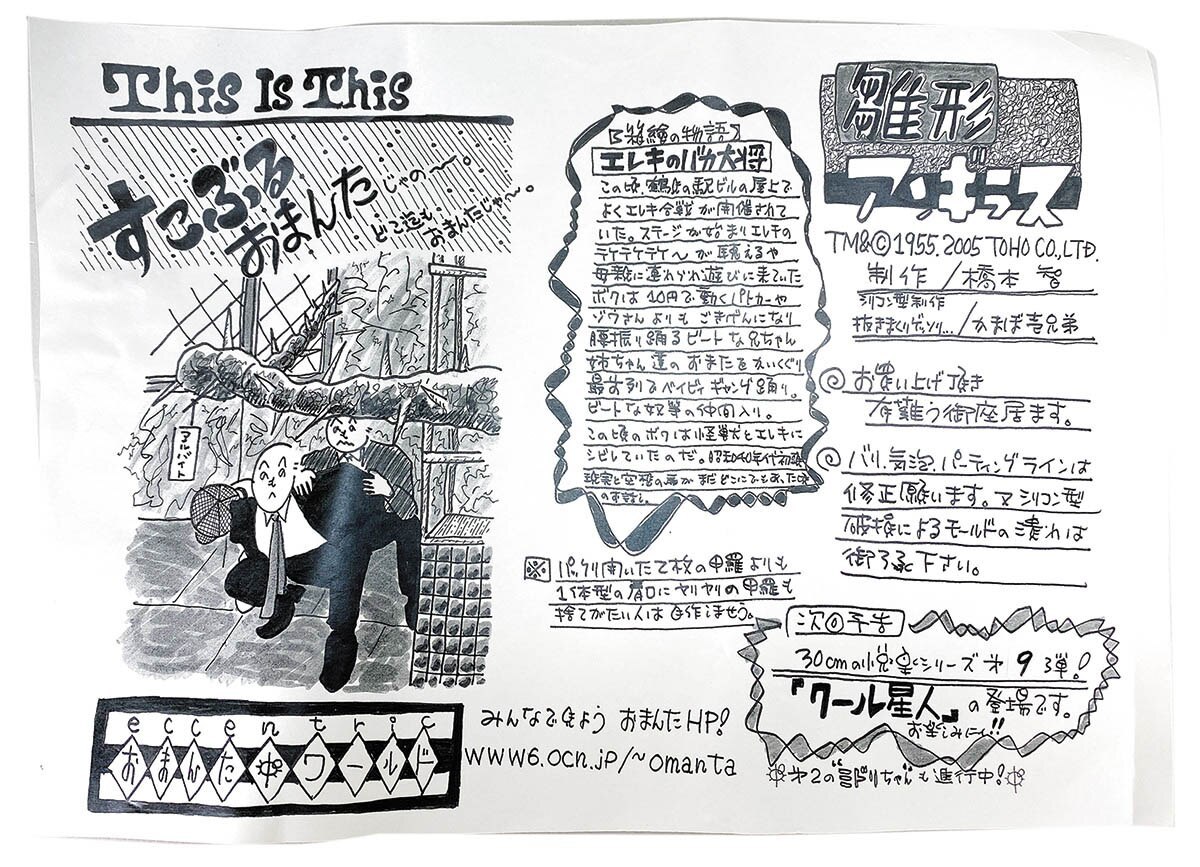 This Is This
すこぶる
おまんた
じゃの〜。
どこ迄も
おまんたじゃ〜。
アルバイト
eccentric
おまんた ワールド
みんなで見よう おまんたHP!
www6.ocn.jp/~omanta
【箱絵の物語】
エレキのバカ大将
この頃、鶴見の駅ビルの屋上で
よくエレキ合戦が開催されて
いた。ステージが始まりエレキの
テケテケテケ〜が聴えるや
母親に連れられ遊びに来ていた
ボクは10円で動くパトカーや
ゾウさんよりもごきげんになり
腰振り踊るビートな兄ちゃん
姉ちゃん達のおまたをかいくぐり
最前列でベイビィギャング踊り。
ビートな奴等の仲間入り。
この頃のボクは怪獣とエレキに
シビレていたのだ。昭和40年代初頭
現実と空想の扉がまだどこにでもあった頃
の昔話し。
※ パックリ開いた2枚の甲羅よりも
1体型の肩口にヤリヤリの甲羅も
捨てがたい人は自作しませう。
雛形
アンギラス
TM&©1955.2005 TOHO CO.,LTD.
制作/橋本 智
シリコン型制作
抜きまくりゲッソリ…/かまぼこ兄弟
◎ お買い上げ頂き
有難う御座居ます。
◎ バリ、気泡、パーティングラインは
修正願います。又シリコン型
破損によるモールドの潰れは
御了承下さい。
次の予告
30cmの怪星人シリーズ第9弾!
『クール星人』の登場です。
お楽しみに!!
第2の 進行中!